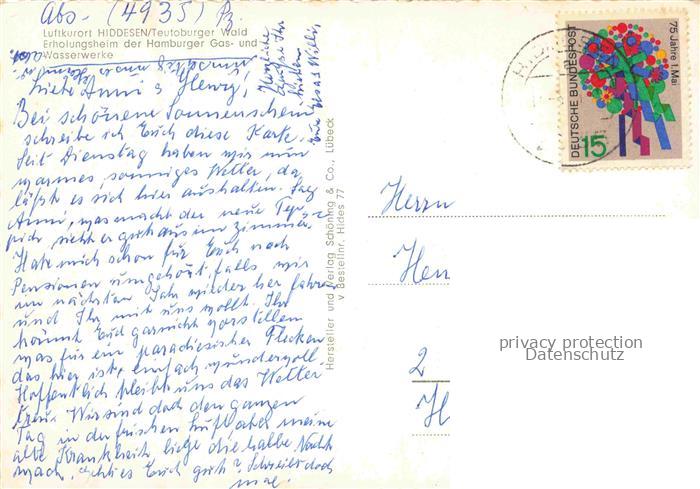 Abs. (4935) Pz.
Luftkurort HIDDESEN/Teutoburger Wald
Erholungsheim der Hamburger Gas- und
Wasserwerke
Liebe Anni & Henry!
Bei schönstem Sonnenschein
schreibe ich Euch diese Karte.
Seit Dienstag haben wir nun
warmes, sonniges Wetter, da
läßt es sich hier aushalten. Sag
Anni, was macht der neue Tep-
pich, sieht er gut aus im Zimmer?
Habe mich schon für Euch nach
Pensionen umgehört, falls wir
im nächsten Jahr wieder her fahren
und Ihr mit uns wollt. Ihr
könnt Euch garnicht vorstellen
was für ein paradiesischer Flecken
das hier ist, einfach wundervoll.
Hoffentlich bleibt uns das Wetter
treu. Wir sind doch den ganzen
Tag in der frischen Luft aber meine
alte Krankheit, liege die halbe Nacht
wach. Geht es Euch gut? Schreibt doch
mal.
Herzliche
Grüße Ihr
Lieben
Eure Elsa & Willi
Hersteller und Verlag Schöning & Co., Lübeck
v Bestellnr. Hides 77
75 Jahre 1. Mai
DEUTSCHE BUNDESPOST
15
Herrn
Hen
2
H
privacy protection
Datenschutz